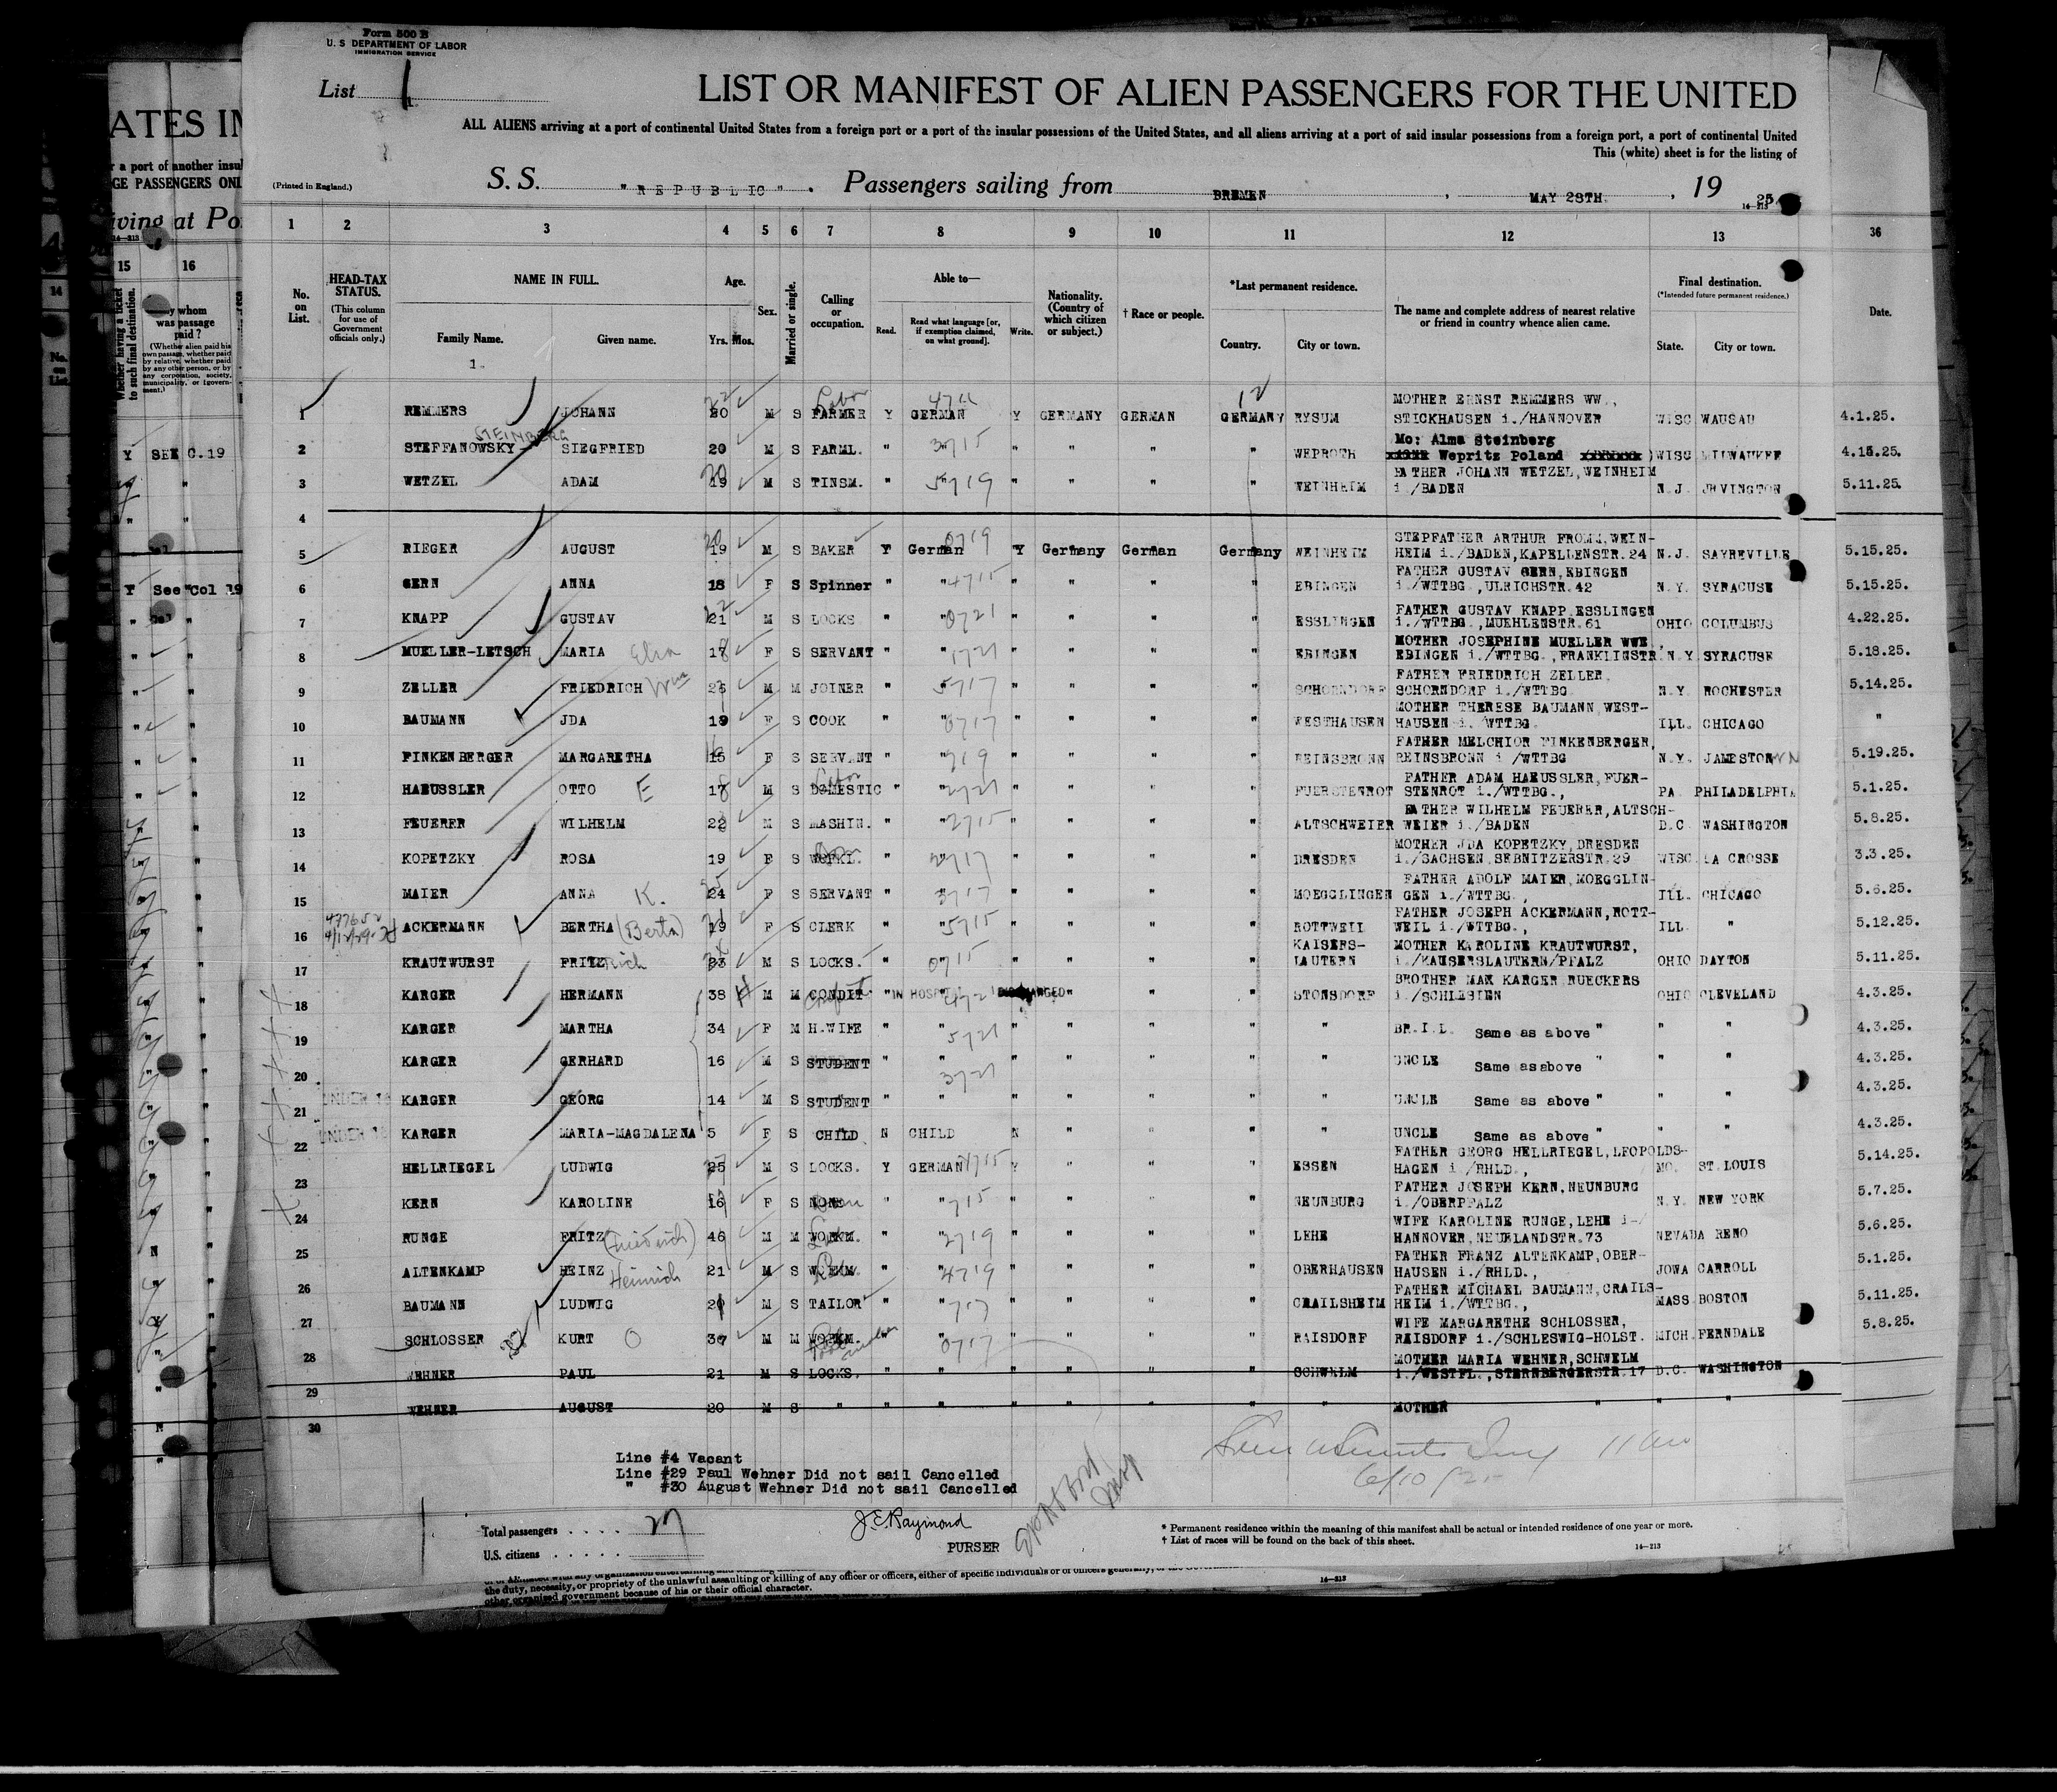 Form 500 B
U. S DEPARTMENT OF LABOR
IMMIGRATION SERVICE
List 1
LIST OR MANIFEST OF ALIEN PASSENGERS FOR THE UNITED
ALL ALIENS arriving at a port of continental United States from a foreign port or a port of the insular possessions of the United States, and all aliens arriving at a port of said insular possessions from a foreign port, a port of continental United
This (white) sheet is for the listing of
(Printed in England.)
S. S. "REPUBLIC". Passengers sailing from BREMEN, MAY 28TH. , 19 25
1 2 3 4 5 6 7 8 9 10 11 12 13 36
No. on List.
HEAD-TAX STATUS.
(This column for use of Government officials only.)
NAME IN FULL.
Family Name.
Given name.
Age.
Yrs. Mos.
Sex.
Married or single.
Calling or occupation.
Able to—
Read.
Read what language [or, if exemption claimed, on what ground].
Write.
Nationality. (Country of which citizen or subject.)
† Race or people.
*Last permanent residence.
Country.
City or town.
The name and complete address of nearest relative or friend in country whence alien came.
Final destination.
(*Intended future permanent residence.)
State.
City or town.
Date.
1 REMMERS JOHANN M S FARMER Y GERMAN Y GERMANY GERMAN GERMANY RYSUM MOTHER ERNST REMMERS WW., STICKHAUSEN i./HANNOVER WISC WAUSAU 4.1.25.
2 STEFFANOWSKY STEINBERG SIEGFRIED 20 M S FARML. " " " " " WEPROTH Mo: Alma Steinberg Wepritz Poland WISC MILWAUKEE
3 WETZEL ADAM 19 M S TINSM. " " " " " WEINHEIM FATHER JOHANN WETZEL, WEINHEIM i./BADEN N.J. IRVINGTON 5.11.25.
4
5 RIEGER AUGUST 19 M S BAKER Y German Y Germany German Germany WEINHEIM STEPFATHER ARTHUR FROMM, WEINHEIM i./BADEN, KAPELLENSTR. 24 N.J. SAYREVILLE 5.15.25.
6 GERN ANNA 18 F S Spinner " " " " " " EBINGEN FATHER GUSTAV GERN, EBINGEN i./WTTBG., ULRICHSTR. 42 N.Y. SYRACUSE 5.15.25.
7 KNAPP GUSTAV 21 M S LOCKS " " " " " " ESSLINGEN FATHER GUSTAV KNAPP ESSLINGEN i./WTTBG., MUEHLENSTR. 61 OHIO COLUMBUS 4.22.25.
8 MUELLER-LETSCH MARIA 17 F S SERVANT " " " " " " EBINGEN MOTHER JOSEPHINE MUELLER WWE, EBINGEN i./WTTBG., FRANKLINSTR. N.Y. SYRACUSE 5.18.25.
9 ZELLER FRIEDRICH Wm M M JOINER " " " " " " SCHORNDORF FATHER FRIEDRICH ZELLER, SCHORNDORF i./WTTBG N.Y. ROCHESTER 5.14.25.
10 BAUMANN JDA 19 F S COOK " " " " " " WESTHAUSEN MOTHER THERESE BAUMANN, WESTHAUSEN i./WTTBG. ILL. CHICAGO "
11 FINKENBERGER MARGARETHA 15 F S SERVANT " " " " " " REINSBRONN FATHER MELCHIOR FINKENBERGER, REINSBRONN i/WTTBG N.Y. JAMESTOWN 5.19.25.
12 HAEUSSLER OTTO E 17 M S DOMESTIC " " " " " FUERSTENROT FATHER ADAM HAEUSSLER, FUERSTENROT i./WTTBG., PA PHILADELPHIA 5.1.25.
13 FEUERER WILHELM 22 M S MASHIN. " " " " " " ALTSCHWEIER FATHER WILHELM FEUERER, ALTSCHWEIER i./BADEN D.C WASHINGTON 5.8.25.
14 KOPETZKY ROSA 19 F S WORKL. " " " " " " DRESDEN MOTHER JDA KOPETZKY, DRESDEN i./SACHSEN, SEBNITZERSTR. 29 WISC. LA CROSSE 3.3.25.
15 MAIER ANNA K. 24 F S SERVANT " " " " " " MOEGGLINGEN FATHER ADOLF MAIER, MOEGGLINGEN i./WTTBG., ILL. CHICAGO 5.6.25.
16 ACKERMANN BERTHA (Berta) 19 F S CLERK " " " " " " ROTTWEIL FATHER JOSEPH ACKERMANN, ROTTWEIL i./WTTBG., ILL. " 5.12.25.
17 KRAUTWURST FRITZ 33 M S LOCKS. " " " " " " KAISERSLAUTERN MOTHER KAROLINE KRAUTWURST, i./KAUSERSLAUTERN/PFALZ OHIO DAYTON 5.11.25.
18 KARGER HERMANN 38 M M CONDIT " IN HOSPITAL DISCHARGED " " " STONSDORF BROTHER MAX KARGER RUECKERS i./SCHLESIEN OHIO CLEVELAND 4.3.25.
19 KARGER MARTHA 34 F M H.WIFE " " " " " " " BR.I.L. Same as above " " " 4.3.25.
20 KARGER GERHARD 16 M S STUDENT " " " " " " " UNCLE Same as above " " " 4.3.25.
21 UNDER 16 KARGER GEORG 14 M S STUDENT " " " " " " " UNCLE Same as above " " " 4.3.25.
22 UNDER 16 KARGER MARIA-MAGDALENA 5 F S CHILD N CHILD N " " " " UNCLE Same as above " " " 4.3.25.
23 HELLRIEGEL LUDWIG 25 M S LOCKS. Y GERMAN Y " " " ESSEN FATHER GEORG HELLRIEGEL, LEOPOLDSHAGEN i./RHLD., MO. ST. LOUIS 5.14.25.
24 KERN KAROLINE 16 F S NONE " " " " " " NEUNBURG FATHER JOSEPH KERN, NEUNBURG i./OBERPFALZ N.Y. NEW YORK 5.7.25.
25 RUNGE FRITZ (Friedrich) 46 M M WORKM. " " " " " " LEHE WIFE KAROLINE RUNGE, LEHE i./HANNOVER, NEUELANDSTR. 73 NEVADA RENO 5.6.25.
26 ALTENKAMP HEINZ Heinrich 21 M S WORKM. " " " " " " OBERHAUSEN FATHER FRANZ ALTENKAMP, OBERHAUSEN i./RHLD., JOWA CARROLL 5.1.25.
27 BAUMANN LUDWIG M S TAILOR " " " " " " CRAILSHEIM FATHER MICHAEL BAUMANN, CRAILSHEIM i./WTTBG., MASS BOSTON 5.11.25.
28 SCHLOSSER KURT O M M WORKM. " " " " " " RAISDORF WIFE MARGARETHE SCHLOSSER, RAISDORF i./SCHLESWIG-HOLST. MICH. FERNDALE 5.8.25.
29 WEHNER PAUL 21 M S LOCKS. " " " " " " SCHWELM MOTHER MARIA WEHNER, SCHWELM i./WESTFL., STERNBERGERSTR. 17 D.C. WASHINGTON
30 WEHNER AUGUST 20 M S " " " " " " " " MOTHER " " "
Line #4 Vacant
Line #29 Paul Wehner Did not sail Cancelled
" #30 August Wehner Did not sail Cancelled
Total passengers . . . . 27
U.S. citizens . . . . .
J. E. Raymond
PURSER
* Permanent residence within the meaning of this manifest shall be actual or intended residence of one year or more.
† List of races will be found on the back of this sheet.
14—213
the duty, necessity, or propriety of the unlawful assaulting or killing of any officer or officers, either of specific individuals or of officers generally,
other organized government because of his or their official character.
14—213
ATES IN
r a port of another insul
GE PASSENGERS ONL
iving at Po
15 16
Whether having a ticket to such final destination.
By whom was passage paid?
(Whether alien paid his own passage, whether paid by relative, whether paid by any other person, or by any corporation, society, municipality, or government.)
Y SEE C.19
Y See Col 19